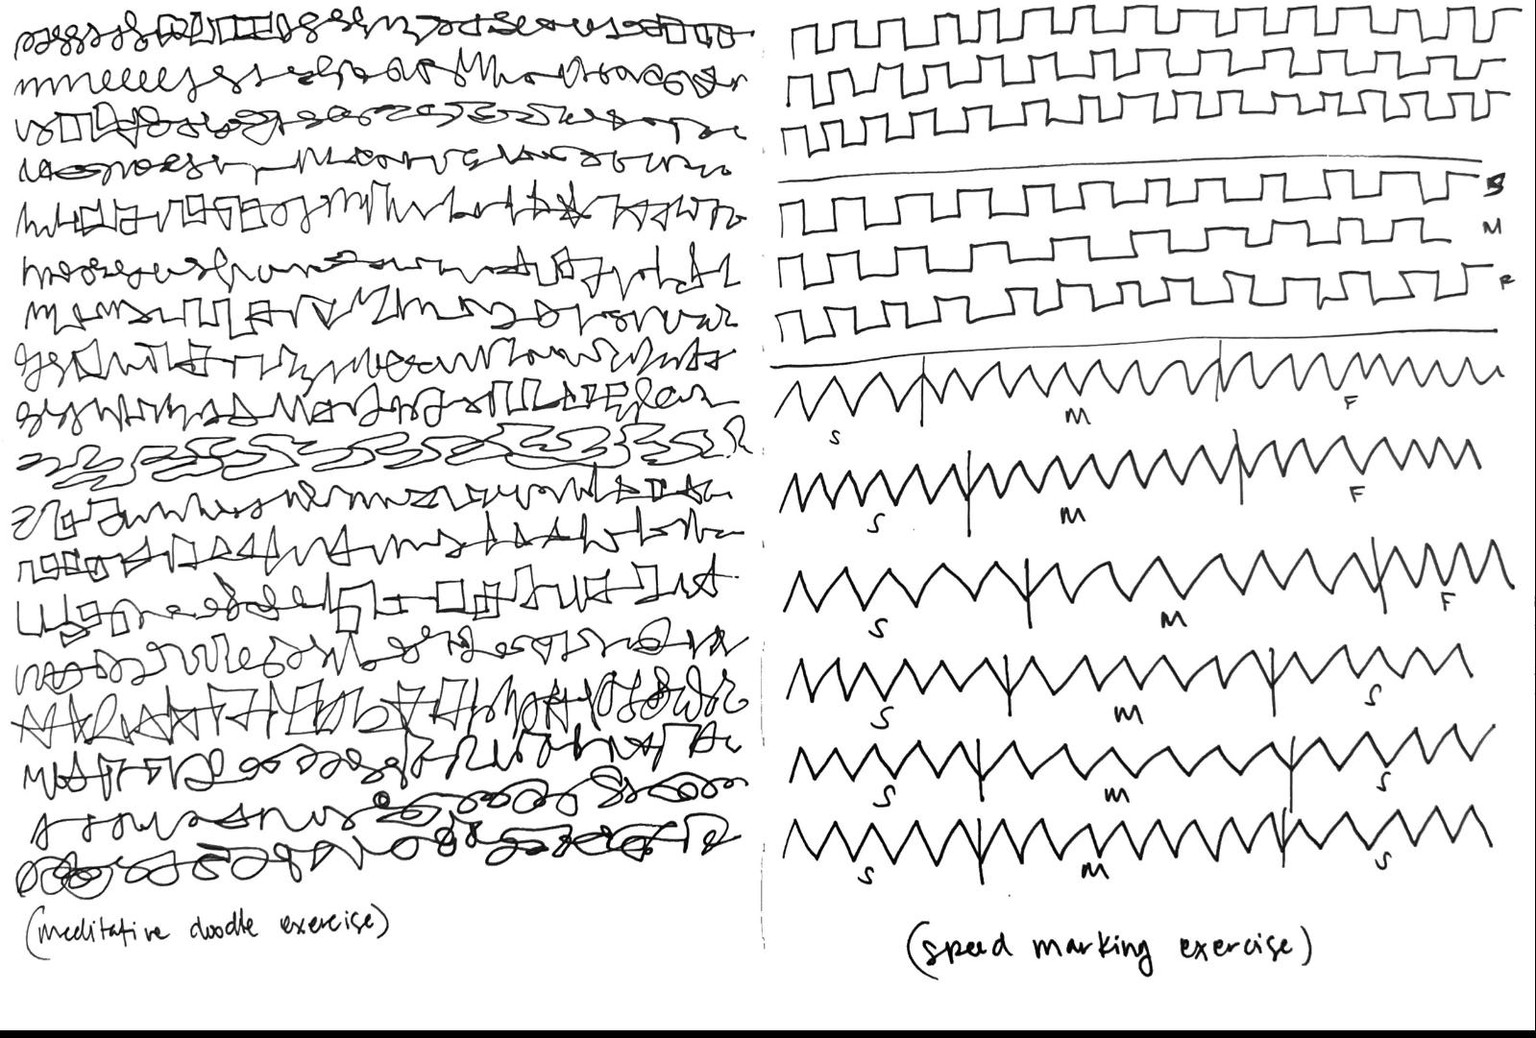 (meditative doodle exercise)
S
M
F
S M F
S M F
S M F
S M S
S M S
S M S
(speed marking exercise)